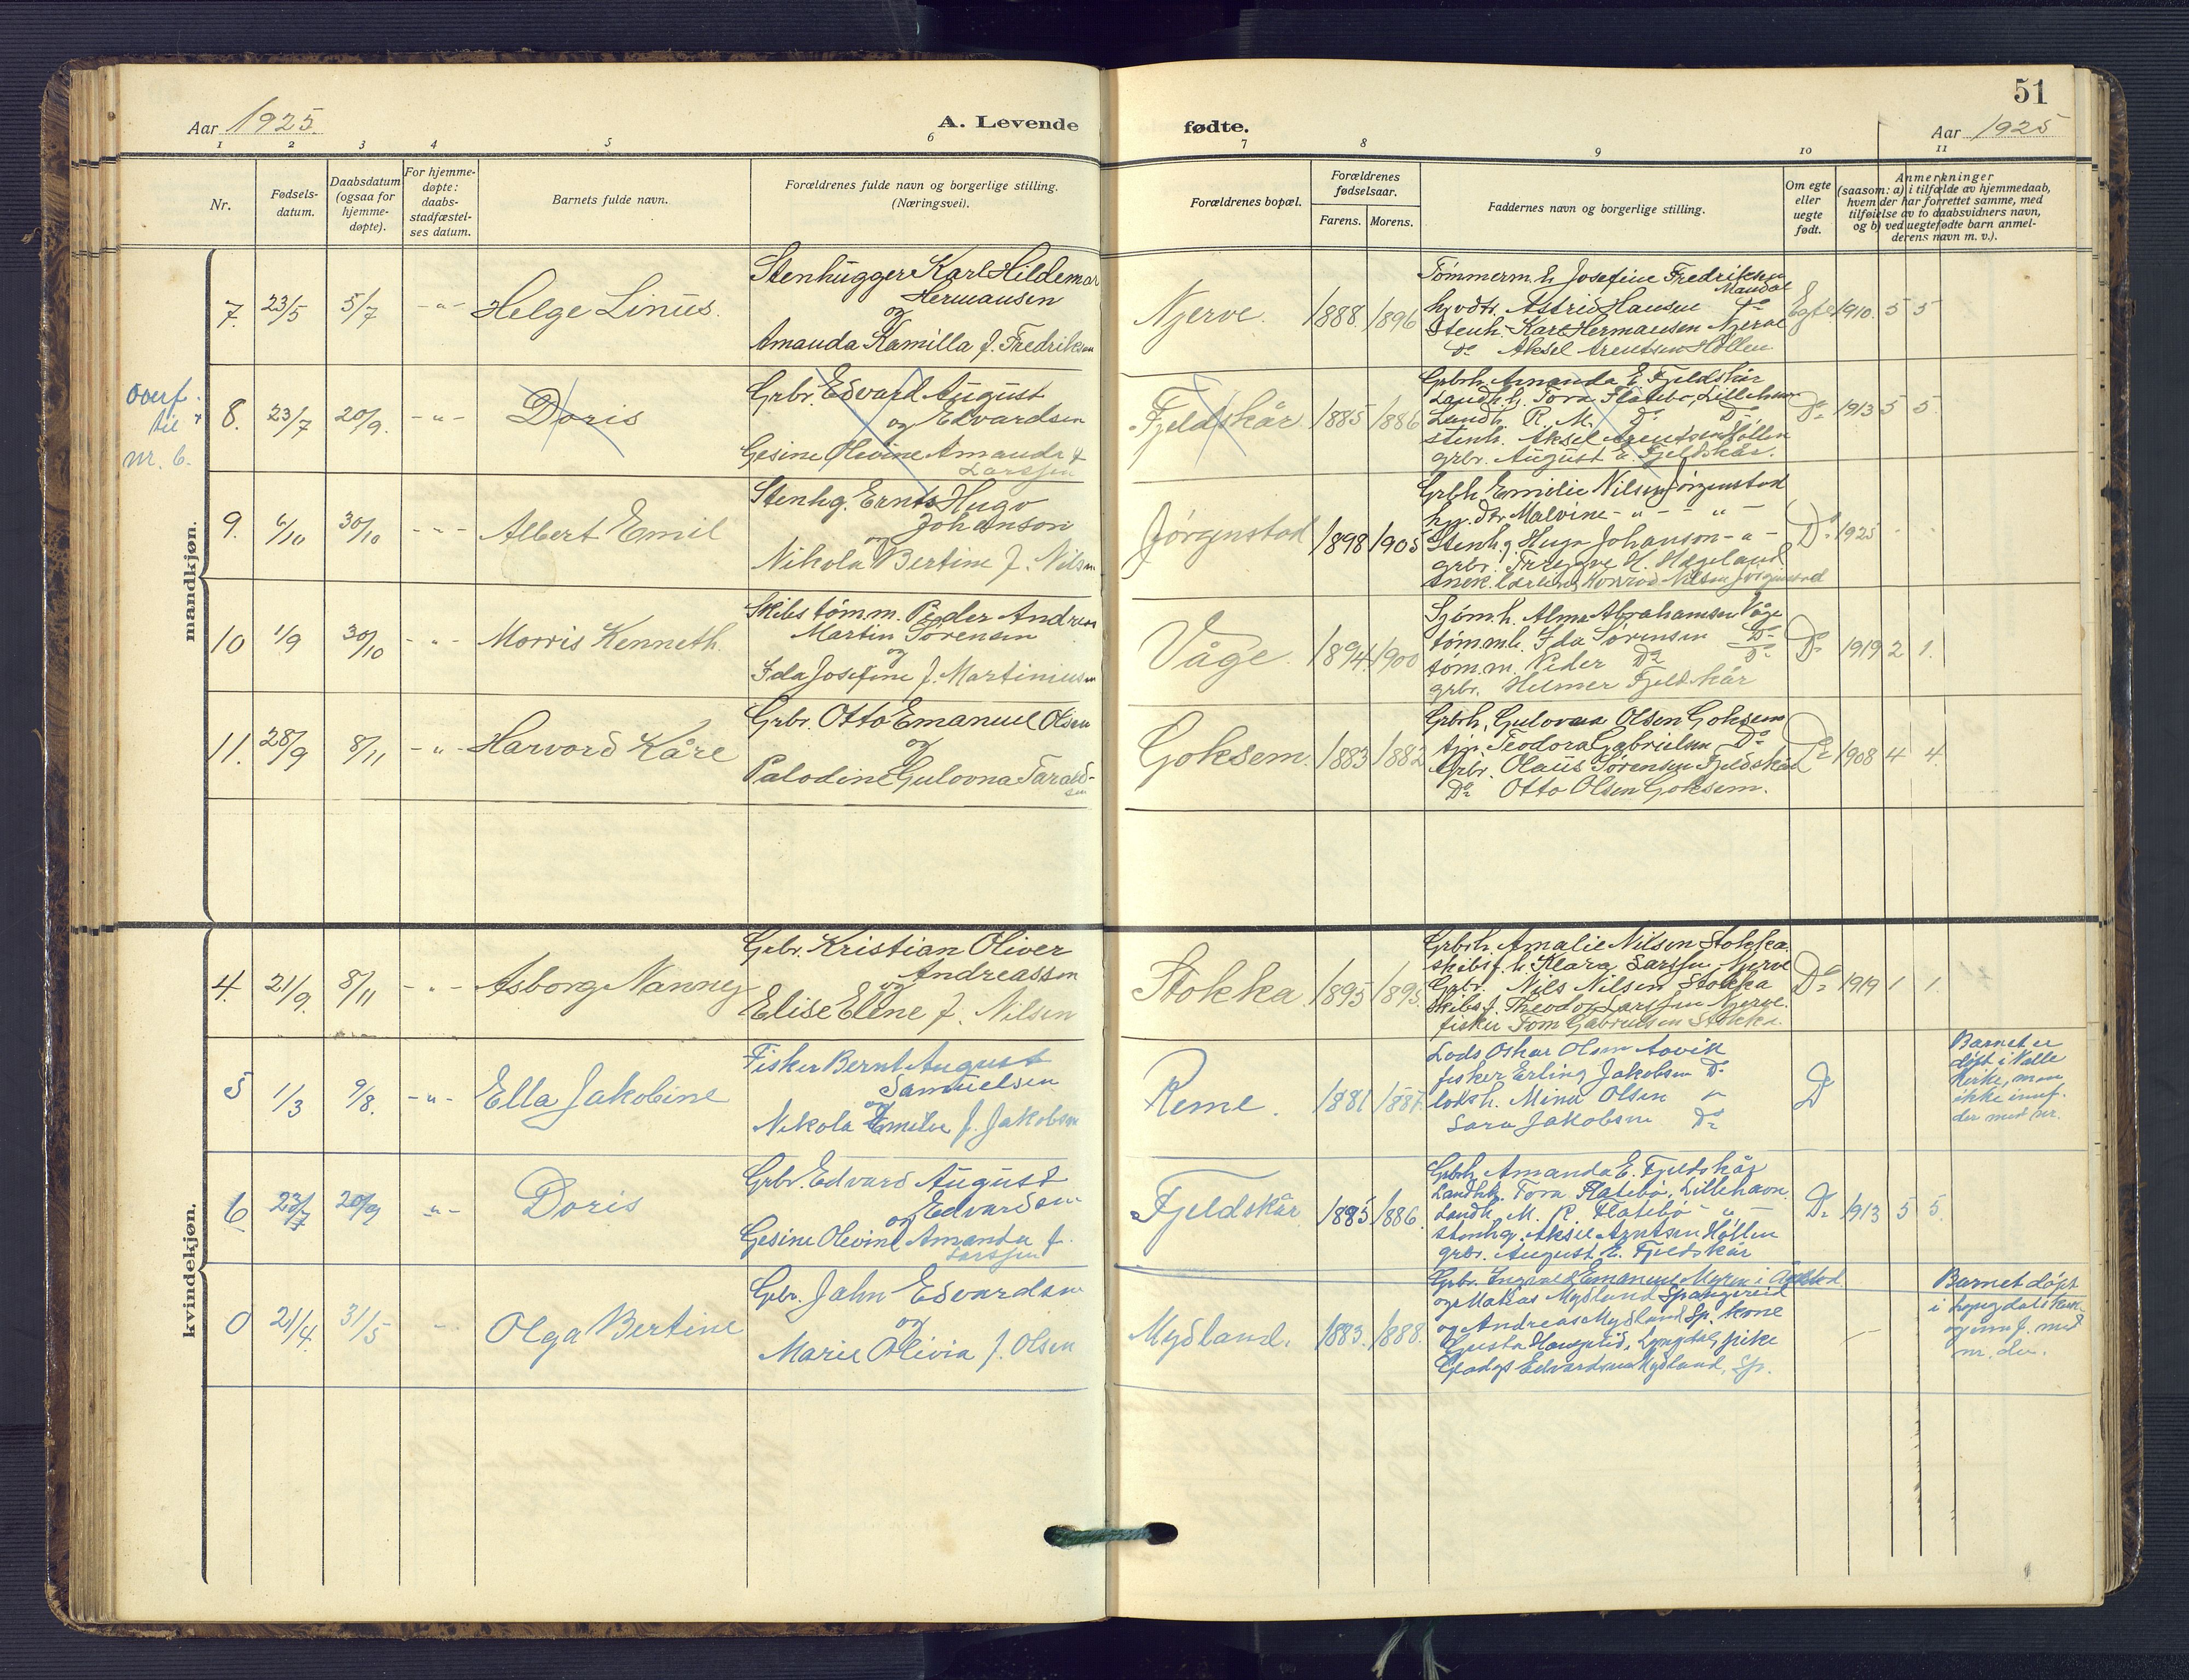 51
Aar 1925.
A. Levende
fødte.
Aar 1925
1 2 3 4 5 6 7 8 9 10 11
Nr.
Fødsels-
datum.
Daabsdatum
(ogsaa for
hjemme-
døpte).
For hjemme-
døpte:
daabs-
stadfæstel-
ses datum.
Barnets fulde navn.
Forældrenes fulde navn og borgerlige stilling.
(Næringsvei).
Forældrenes bopæl.
Forældrenes
fødselsaar.
Farens. Morens.
Faddernes navn og borgerlige stilling.
Om egte
eller
uegte
født.
Anmerkninger
(saasom: a) i tilfælde av hjemmedaab,
hvem der har forrettet samme, med
tilføielse av to daabsvidners navn,
og b) ved uegtefødte barn anmel-
derens navn m. v.).
mandkjøn.
7. 23/5 5/7 -"- Helge Linus.
Stenhugger Karl Hildemar
Hermansen
og
Amanda Kamilla f. Fredriksen
Njerve. 1888. 1896
Tømmerm. h. Josefine Fredriksen
Mandal
hjvdtr. Astrid Hansen Do
Stenh. Karl Hermansen Njerve
Do Aksel Arentsen Höllen
Egte. 1910. 5 5
overf.
til
nr. 6.
8. 23/7 20/9. -"- Doris
Grbr. Edvard August
og Edvardsen
Gesine Olevine Amanda f
Larssen
Fjeldskår 1885 1886
Grbrh. Amanda E. Fjeldskår
Landh. h. Tora Flatebø, Lillehavn
Landh. R. M. Do Do
Stenh. Aksel Arentsen Höllen
grbr. August E. Fjeldskår.
Do 1913 5 5.
9. 6/10 30/10 -"- Albert Emil
Stenhg. Ernts Hugo
Johanson
og
Nikola Bertine f. Nilsen
Jörgenstad 1898 1905
Grbh Emilie Nilsen Jörgenstad
hj. dtr Malvine -"- -"-
Stenhg Hugo Johanson -"-
grbr. Trygve H. Hageland
Konrad Nilsen Jörgenstad
Do 1925 - -
10 1/9 30/10 -"- Morris Kenneth.
Skibstömm. Peder Andreas
Martin Sörensen
og
Ida Josefine f. Martiniusen
Våge. 1894 1900
Sjömh. Alma Abrahamsen Våge
tömmh. Ida Sörensen Do
tömm. Peder Do Do
grbr. Helmer Fjeldskår
Do 1919 2 1.
11. 28/9 8/11 -"- Harvord Kåre
Grbr. Otto Emanuel Olsen
og
Palodine Gulovna Tarald-
sen
Goksem. 1883 1882
Grbrh. Gulovna Olsen Goksem
tjp. Teodora Gabrielsen Do
Grbr. Olaus Sörensen Fjeldskår
Do Otto Olsen Goksem.
Do 1908 4 4.
kvindekjøn.
4. 21/9. 8/11 -"- Asborg Nanney
Grbr. Kristian Oliver
Andreassen
og
Elise Elene f. Nilsen
Stokka. 1895 1895
Grbrh. Amalie Nilsen Stokka.
skibsf. h. Klara Larssen Njerve
Grbr. Nils Nilsen Stokka
Skibsf. Theodor Larssen Njerve.
fisker Tom Gabrielsen Stokka.
Do 1919 1 1.
5 1/3 9/8. -"- Ella Jakobine
Fisker Bernt August
Samuelsen
og
Nikola Emilie f. Jakobsen
Reme. 1881 1887.
Lods Oskar Olsen Aavik
fisker Erling Jakobsen Do
lodsh. Mina Olsen "
Sara Jakobsen Do
Do
Barnet er
døpt i Valle
kirke, men
ikke innf.
der med nr.
6 23/7 20/9 -"- Doris
Grbr. Edvard August
og Edvardsen
Gesine Olevine Amanda f.
Larssen
Fjeldskår 1885 1886.
Grbrh. Amanda E. Fjeldskår
Landhh. Tora Flatebø, Lillehavn
Landh. M. R. Flatebø - " -
Stenhg. Aksel Arntsen Höllen
grbr. August E. Fjeldskår
Do 1913 5 5.
0 21/4. 31/5 - Olga Bertine
Gbr. Jahn Edvardsen
og
Marie Olivia f. Olsen
Mydland. 1883. 1888.
Grbr. Emanuel Myren i
og Matias Mydland Spangereid
og Andreas Mydland Sp. kone
Gusta Lyngdal, pike
Gladys Edvardsen Mydland, Sp.
Barnet døpt
i Lyngdals kirke
og innf. med
nr. der.